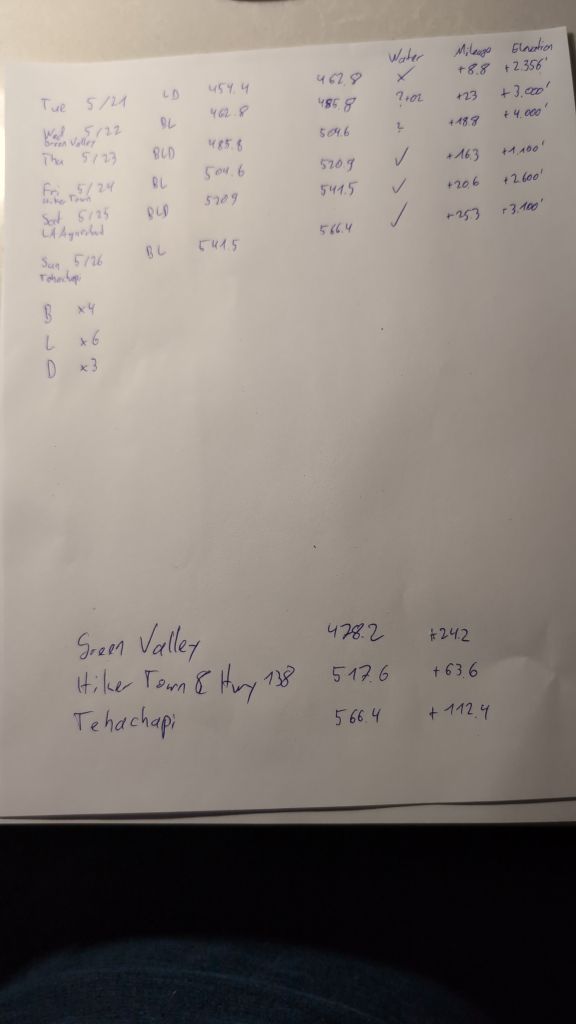 Water Mileage Elevation
Tue 5/21 LD 454.4 462.8 x +8.8 +2.356'
Wed 5/22 BL 462.8 485.8 ?+02 +23 +3.000'
Green Valley
Thu 5/23 BLD 485.8 504.6 ? +18.8 +4.000'
Fri 5/24 BL 504.6 520.9 ✓ +16.3 +1.100'
Hiker Town
Sat 5/25 BLD 520.9 541.5 ✓ +20.6 +2.600'
LA
Sun 5/26 BL 541.5 566.4 ✓ +25.3 +3.100'
Tehachapi
B x4
L x6
D x3
Green Valley 478.2 +24.2
Hiker Town & Hwy 138 517.6 +63.6
Tehachapi 566.4 +112.4